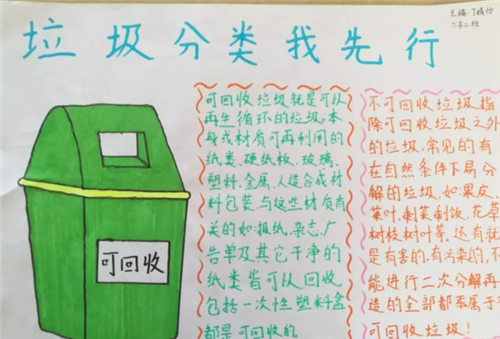 垃圾分类我先行
主编:丁
六年二班
可回收
可回收垃圾就是可以
再生循环的垃圾,本
身或材质可再利用的
纸类、硬纸板、玻璃、
塑料、金属、人造合成材
料包装,与这些材质有
关的如报纸、杂志、广
告单及其它干净的
纸类皆可以回收
包括一次性塑料盒
都是可回收的
不可回收垃圾指
除可回收垃圾之外
的垃圾,常见的有
在自然条件下易分
解的垃圾,如:果皮、
菜叶、剩菜剩饭、花草
树枝树叶等,还有就
是有害的,有污染的,不
能进行二次分解再
造的全部都系属于
可回收垃圾!